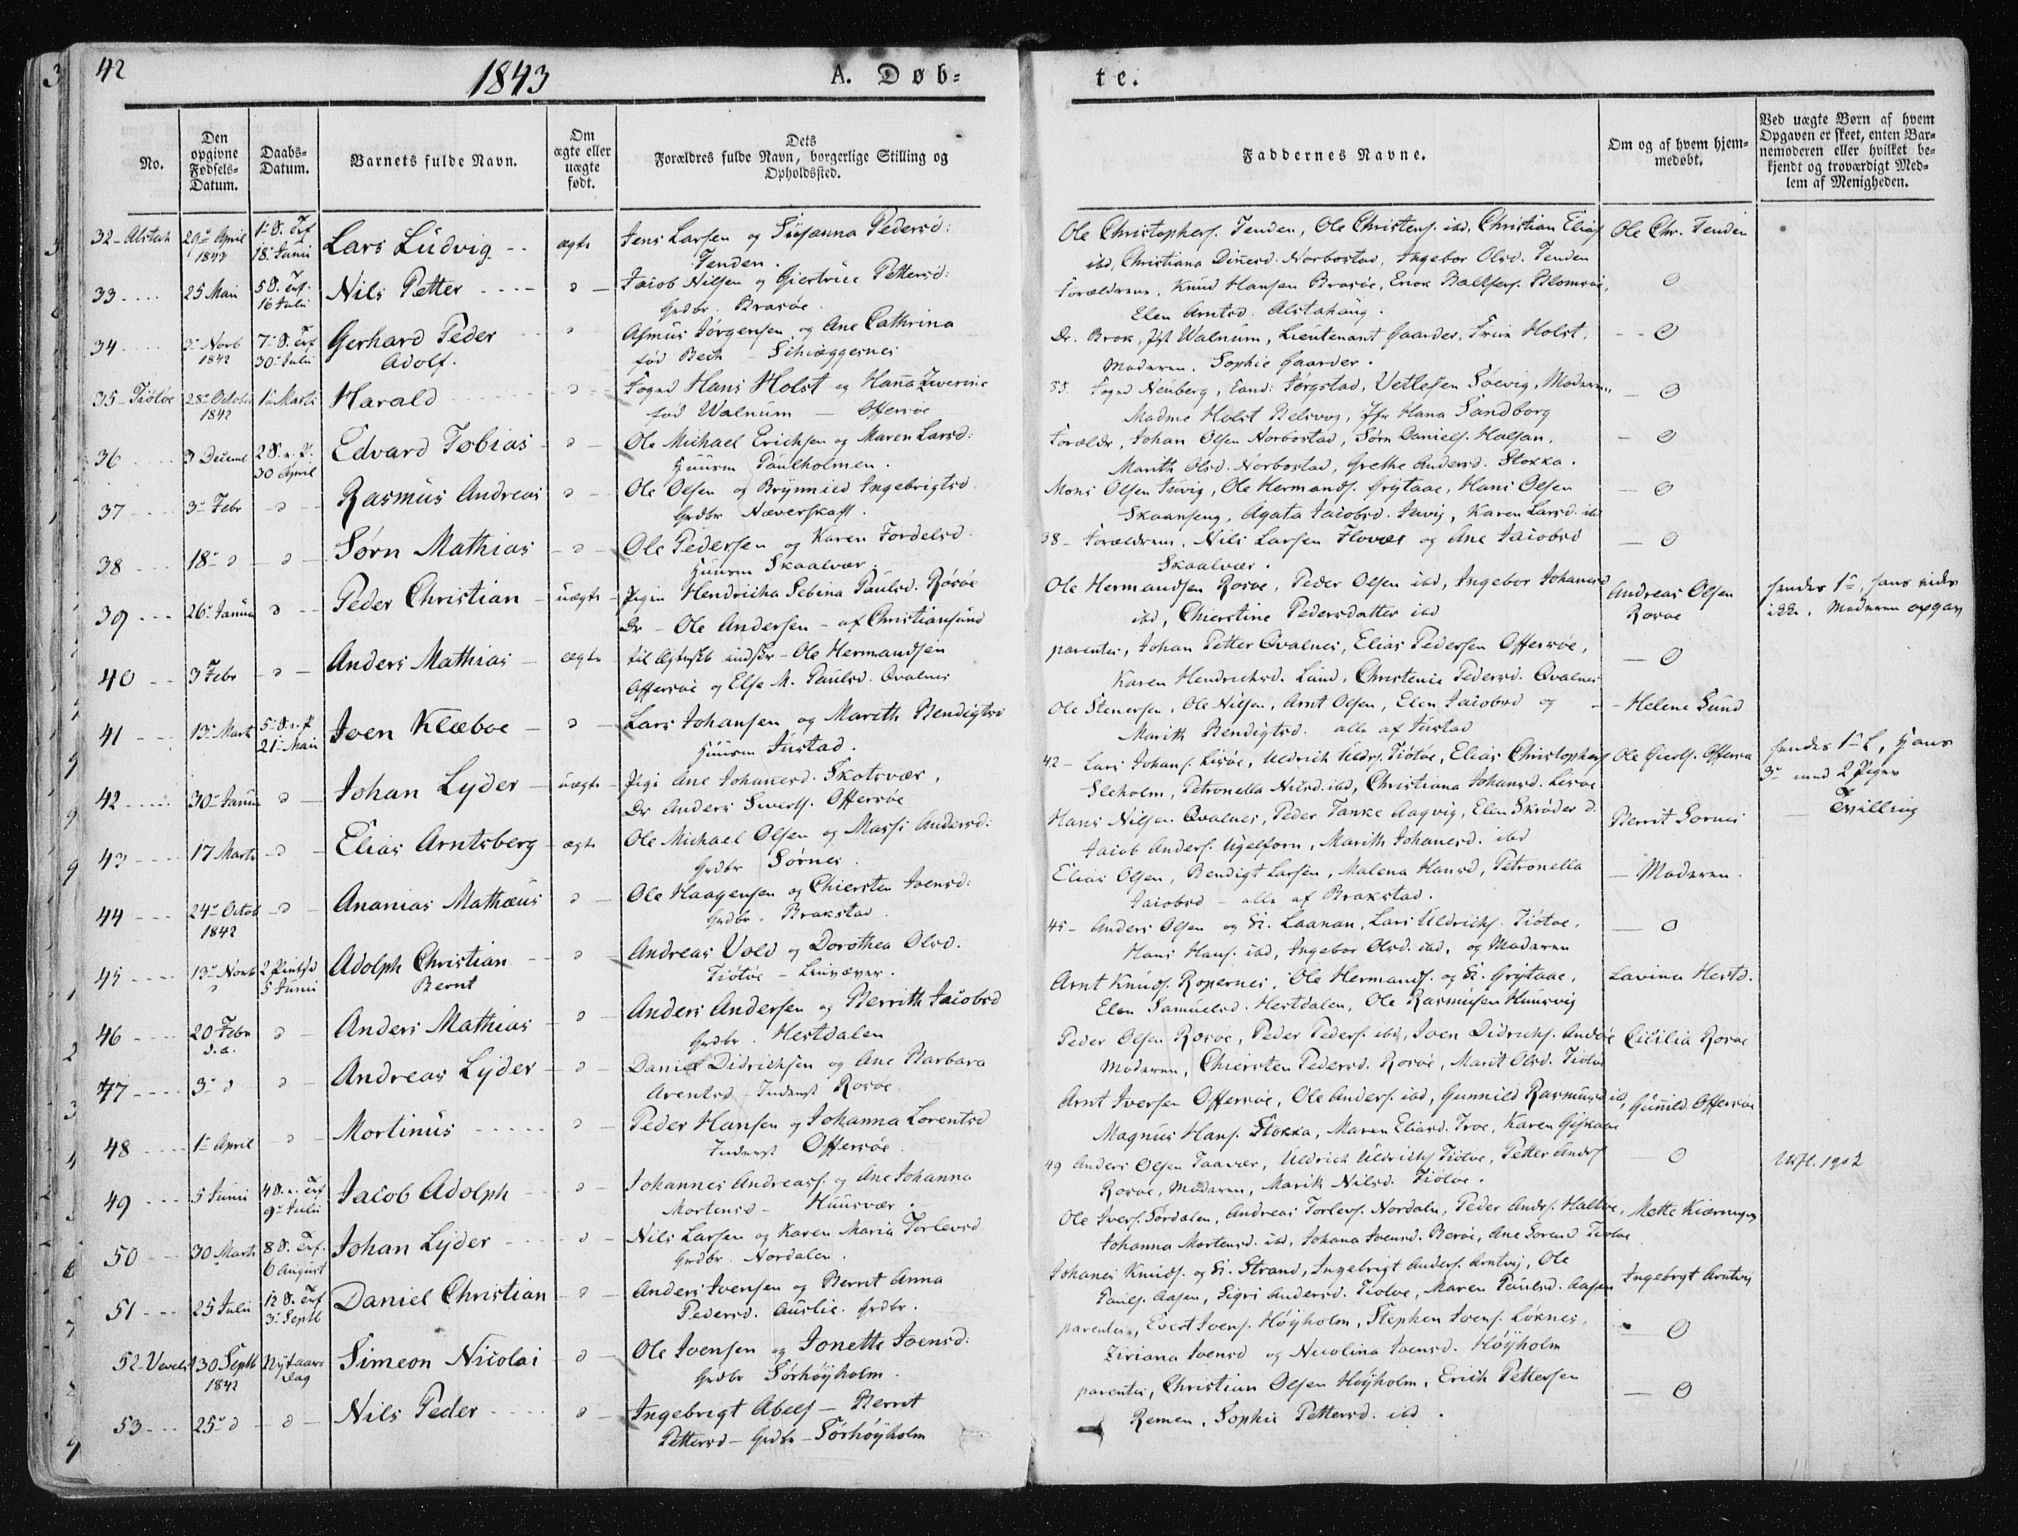 42
1843
A. Døb-
te.
No.
Den opgivne Fødsels-Datum.
Daabs-Datum.
Barnets fulde Navn.
Om ægte eller uægte født.
Dets Forældres fulde Navn, borgerlige Stilling og Opholdssted.
Faddernes Navne.
Om og af hvem hjem-medøbt.
Ved uægte Børn af hvem Opgaven er skeet, enten Bar-nemoderen eller hvilket be-kjendt og troværdigt Med-lem af Menigheden.
32 29 April 1843 18 Junii Lars Ludvig ægte Jens Larsen og Susanna Pedersd: Tenden.
Ole Christophers. Tenden, Ole Christens. ibd, Christian Elias
ibd, Christiana Dinesd. Norbostad, Ingebor Olsd. Tenden
Ole Chr. Tenden
33 25 Maii 16 Julii Nils Petter Jacob Nilsen og Giertrue Pettersd:
Grdbr. Brasøe.
Forældrene, Knud Hansen Brasøe,
Elen Arntsd. Alstahoug.
34 3 Novb 1842 30 Julii Gerhard Peder Adolf. Asmus Jørgensen og Ane Cathrina
fød Bech - Schieggernes
Dr. Brok, Walnum, Lieutenant Gaarder, Holst,
Moderen. Sophie Gaarder.
35 Tiøtøe 28 Octob 1842 1 Marti Harald Foged Hans Holst og Hanna
fød Walnum - Offersøe
Foged Neuberg, Cand: Jørgstad, Vetlesen Søevig, Moderen,
Madme Holst Belsvog, Jfr Hana Sandborg
36 3 Decembr 30 April Edvard Tobias Ole Michael Erichsen og Maren Larsd:
Huusm Paulholmen.
Forældr, Johan Olsen Norbostad, Sørn Daniels.
Marith Olsd. Norbostad, Grethe Andersd. Stokka.
37 3 Febr Rasmus Andreas Ole Olsen og Ingebrigtsd.
Grdbr Næverskaft.
Mons Olsen, Ole Hermands. Grytaae, Hans Olsen
Skaanseng, Agata Jacobsd., Karen Larsd. ibd
38 18 Sørn Mathias Ole Pedersen og Karen Tordelsd.
Huusm Skaalvær.
38 - Forældrene, Nils Larsen Flovær og Ane Jacobsd
Skaalvær.
39 26 Januar Peder Christian uægte Pigen Hendricha Sebina Paulsd. Rosøe
Dr - Ole Andersen - af Christiansund
Ole Hermandsen Rosøe, Peder Olsen ibd, Ingebor Johansd
ibd, Chierstine Pedersdatter ibd
Andreas Olsen Rosøe
40 3 Febr Anders Mathias ægte Ole Hermandsen
Offersøe og Else M. Paulsd. Qvalnes
parentes, Johan Petter Qvalnes, Elias Pedersen Offersøe,
Karen Hendrichsd. Lund, Christence Pedersd. Qvalnes
41 13 Marti 21 Maii Joen Klæboe Lars Johansen og Marith Bendigtsd
Huusm Justad.
Ole Stenersen, Ole Nilsen, Arnt Olsen, Elen Jacobsd og
Marith Bendigtsd. alle af Justad
Helene Sund
42 30 Januar Johan Lyder uægte Pige Ane Johanesd. Skotsvær,
Dr Anders Siverts. Offersøe
42 - Lars Johans. Lisøe, Uldrich Uldrs. Tiøtøe, Elias Christophers
Sleholm, Petronella Nilsd. ibd, Christiana Johansd. Lisøe
Offersøe
med 2 Piger
Tvilling
43 17 Marts Elias Arntsberg ægte Ole Michael Olsen og Massi Andersd:
Grdbr Sørnes.
Hans Nilsen Qvalnes, Peder Tanke Aagvig, Elen Skrøder
Jacob Anders. Ugelforn, Marith Johanesd. ibd
Berrit Sornes
44 24 Octob 1842 Ananias Mathæus Ole Haagensen og Chiersten Joensd:
Grdbr. Brakstad.
Elias Olsen, Bendigt Larsen, Malena Hansd, Petronella
Jacobsd - alle af Brakstad.
Moderen.
45 13 Novb 5 Junii Adolph Christian Bernt Andreas Vold og Dorothea Olsd.
Tiøtøe
45 - Anders Olsen og K. Laanan, Lars Uldrichs. Tiøtøe,
Hans Hans. ibd, Ingebor Olsd. ibd, og Moderen
46 20 Febr Anders Mathias Anders Andersen og Berrith Jacobsd
Grdbr. Hestdalen
Arnt Knuds. Ropernes, Ole Hermands. og K. Grytaae,
Elen Samuelsd. Hestdalen, Ole Rasmusen Huusvig
Lavina Hestd.
47 3 Andreas Lyder Daniel Didrichsen og Ane Barbara
Arentsd - Inderst Rosøe.
Peder Olsen Rosøe, Peder Peders. ibd, Joen Didrichs.
Moderen, Chiersten Pedersd. Rosøe, Marit Olsd. Tiøtøe
Cicilia Rosøe
48 1 April Mortinus Peder Hansen og Johanna Lorentsd
Inderst Offersøe.
Arnt Iversen Offersøe, Ole Anders. ibd, Gunnild Rasmusd ibd,
Magnus Hans. Stokka, Maren Eliasd. Troe, Karen
Gunild Offersøe
49 5 Junii 9 Julii Jacob Adolph Johannes Andreass. og Ane Johanna
Mortensd - Huusvær.
49 Anders Olsen Taavær, Uldrich Uldrichs Tiøtøe, Petter Anders
Rosøe, Moderen, Marit Nilsd. Tiøtøe.
Utfl. 1902
50 30 Marts 6 August Johan Lyder Nils Larsen og Karen Maria Torlevsd
Grdbr. Nordalen.
Ole Ivers. Sørdalen, Andreas Torlevs. Nordaln, Peder Anders. Haltøe,
Johanna Mortensd. ibd, Johana Joensd. Berøe, Ane Sørensd Tiøtøe
Mette
51 25 Julii 3 Septb Daniel Christian Anders Joensen og Berrit Anna
Pedersd. Auslie. Grdbr.
Johanes Knuds. og K. Strand, Ingebrigt Anders. Arntvij, Ole
Pauls. Aasen, Sigri Andersd. Tiøtøe, Maren Paulsd. Aasen
Ingebrgt Arntvij
52. Vevelst 30 Septb 1842 Nytaars Dag Simeon Nicolai Ole Joensen og Jonette Joensd:
Grdbr Sørhøyholm.
parentes, Evert Joens. Høyholm, Stephen Joens. Løknes,
Ziriana Joensd og Nicolina Joensd. Høyholm
53 25 Nils Peder Ingebrigt Abels - Berrit
Pettersd - Grdbr - Sørhøyholm
parentes, Christian Olsen Høyholm, Erich Pettersen
Remen, Sophie Pettersd. ibd.